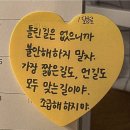 틀린 길은 없으니까
불안해하지 말자.
가장 짧은 길도, 먼 길도
모두 맞는 길이야.
조급해 하지 마.